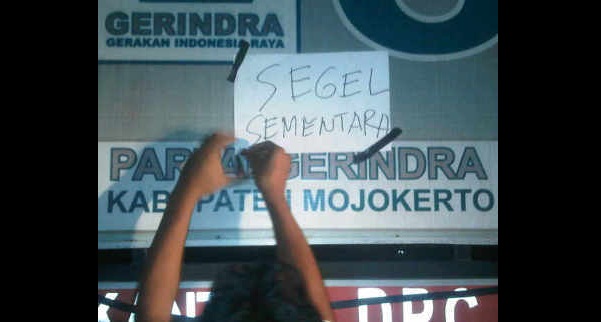 GERINDRA
GERAKAN INDONESIA RAYA
SEGEL
SEMENTARA
GERINDRA
MOJOKERTO